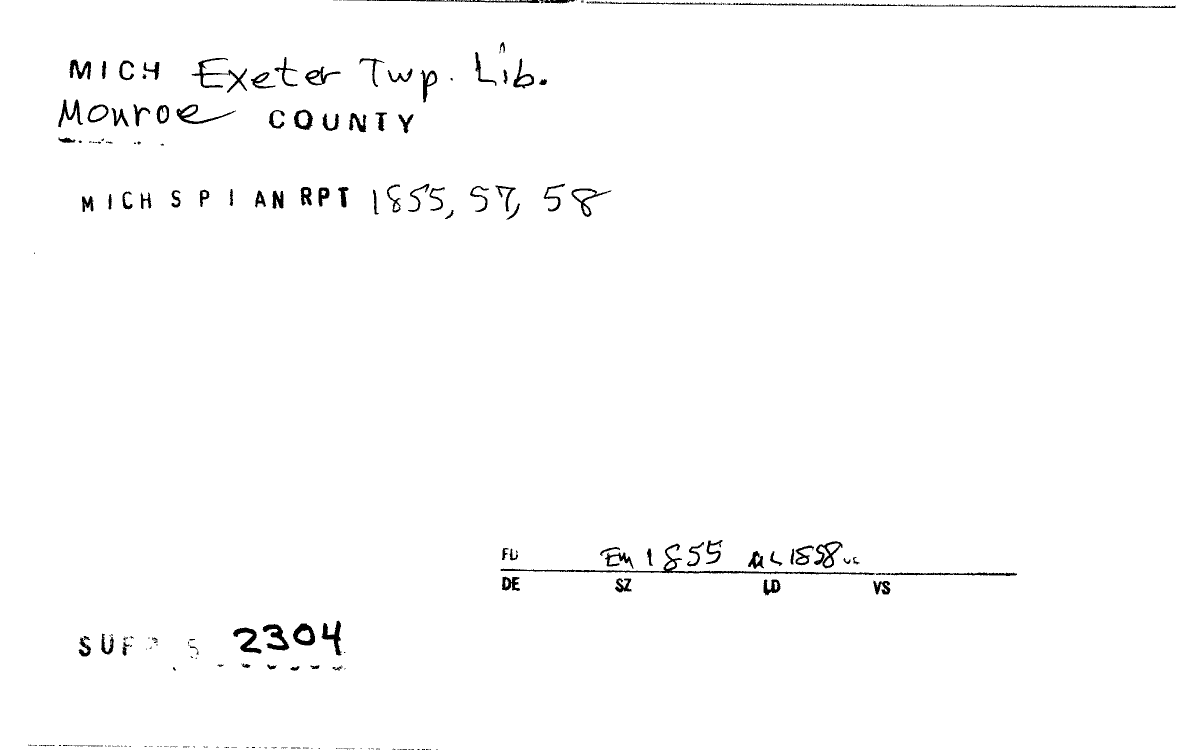 MICH Exeter Twp. Lib.
Monroe COUNTY
MICH S P I AN RPT 1855, 57, 58
FD 1855 1858
DE SZ LD VS
2304